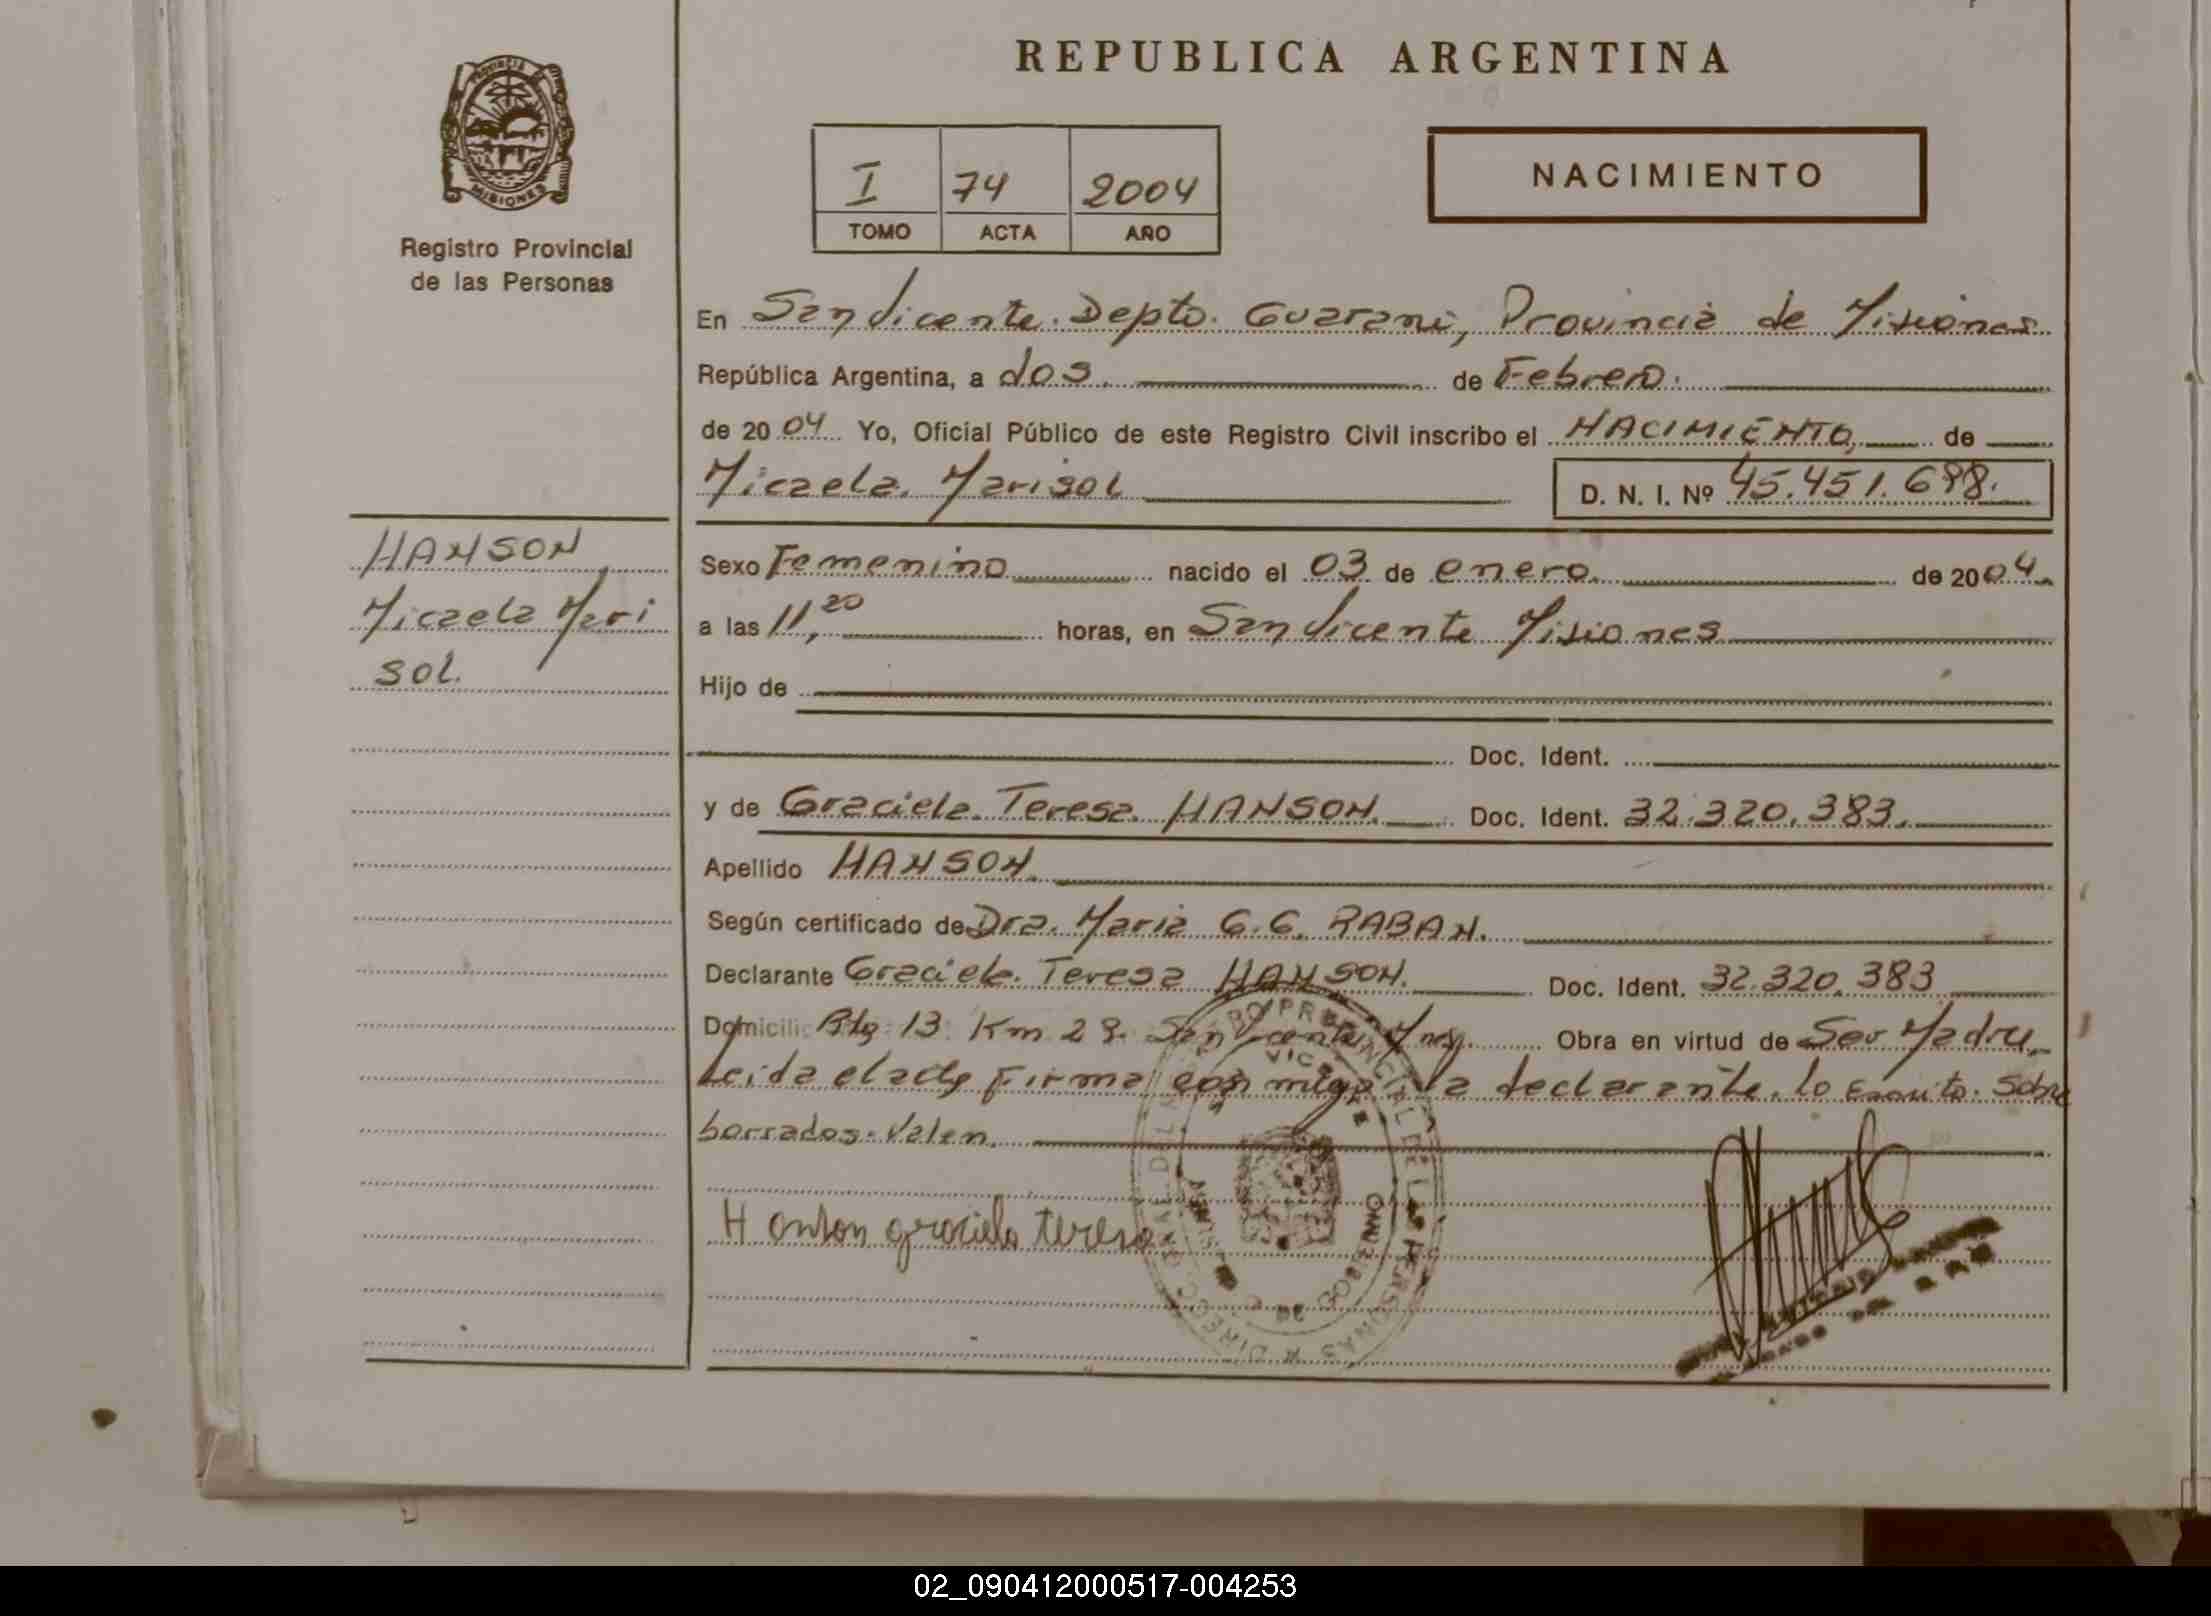 REPUBLICA ARGENTINA
PROVINCIA DE
MISIONES
Registro Provincial
de las Personas
I 74 2004
TOMO ACTA AÑO
NACIMIENTO
En San Vicente. Depto. Guarani, Provincia de Misiones
República Argentina, a dos. de Febrero.
de 2004 Yo, Oficial Público de este Registro Civil inscribo el NACIMIENTO, de
Micaela. Marisol D. N. I. Nº 45.451.698.
HANSON
Micaela Mari
sol.
Sexo Femenino nacido el 03 de enero. de 2004.
a las 11,20 horas, en San Vicente Misiones
Hijo de
Doc. Ident.
y de Graciela. Teresa. HANSON. Doc. Ident. 32.320.383.
Apellido HANSON.
Según certificado de Dra. Maria G.G. RABAN.
Declarante Graciela. Teresa HANSON. Doc. Ident. 32.320.383
Domicilio Rta 13 Km 28. San Vicente Mnes. Obra en virtud de Ser Madre.
Leida el acta firma con migo la declarante. lo Escrito. Sobre
borrados. Valen.
Hanson graciela teresa
02_090412000517-004253